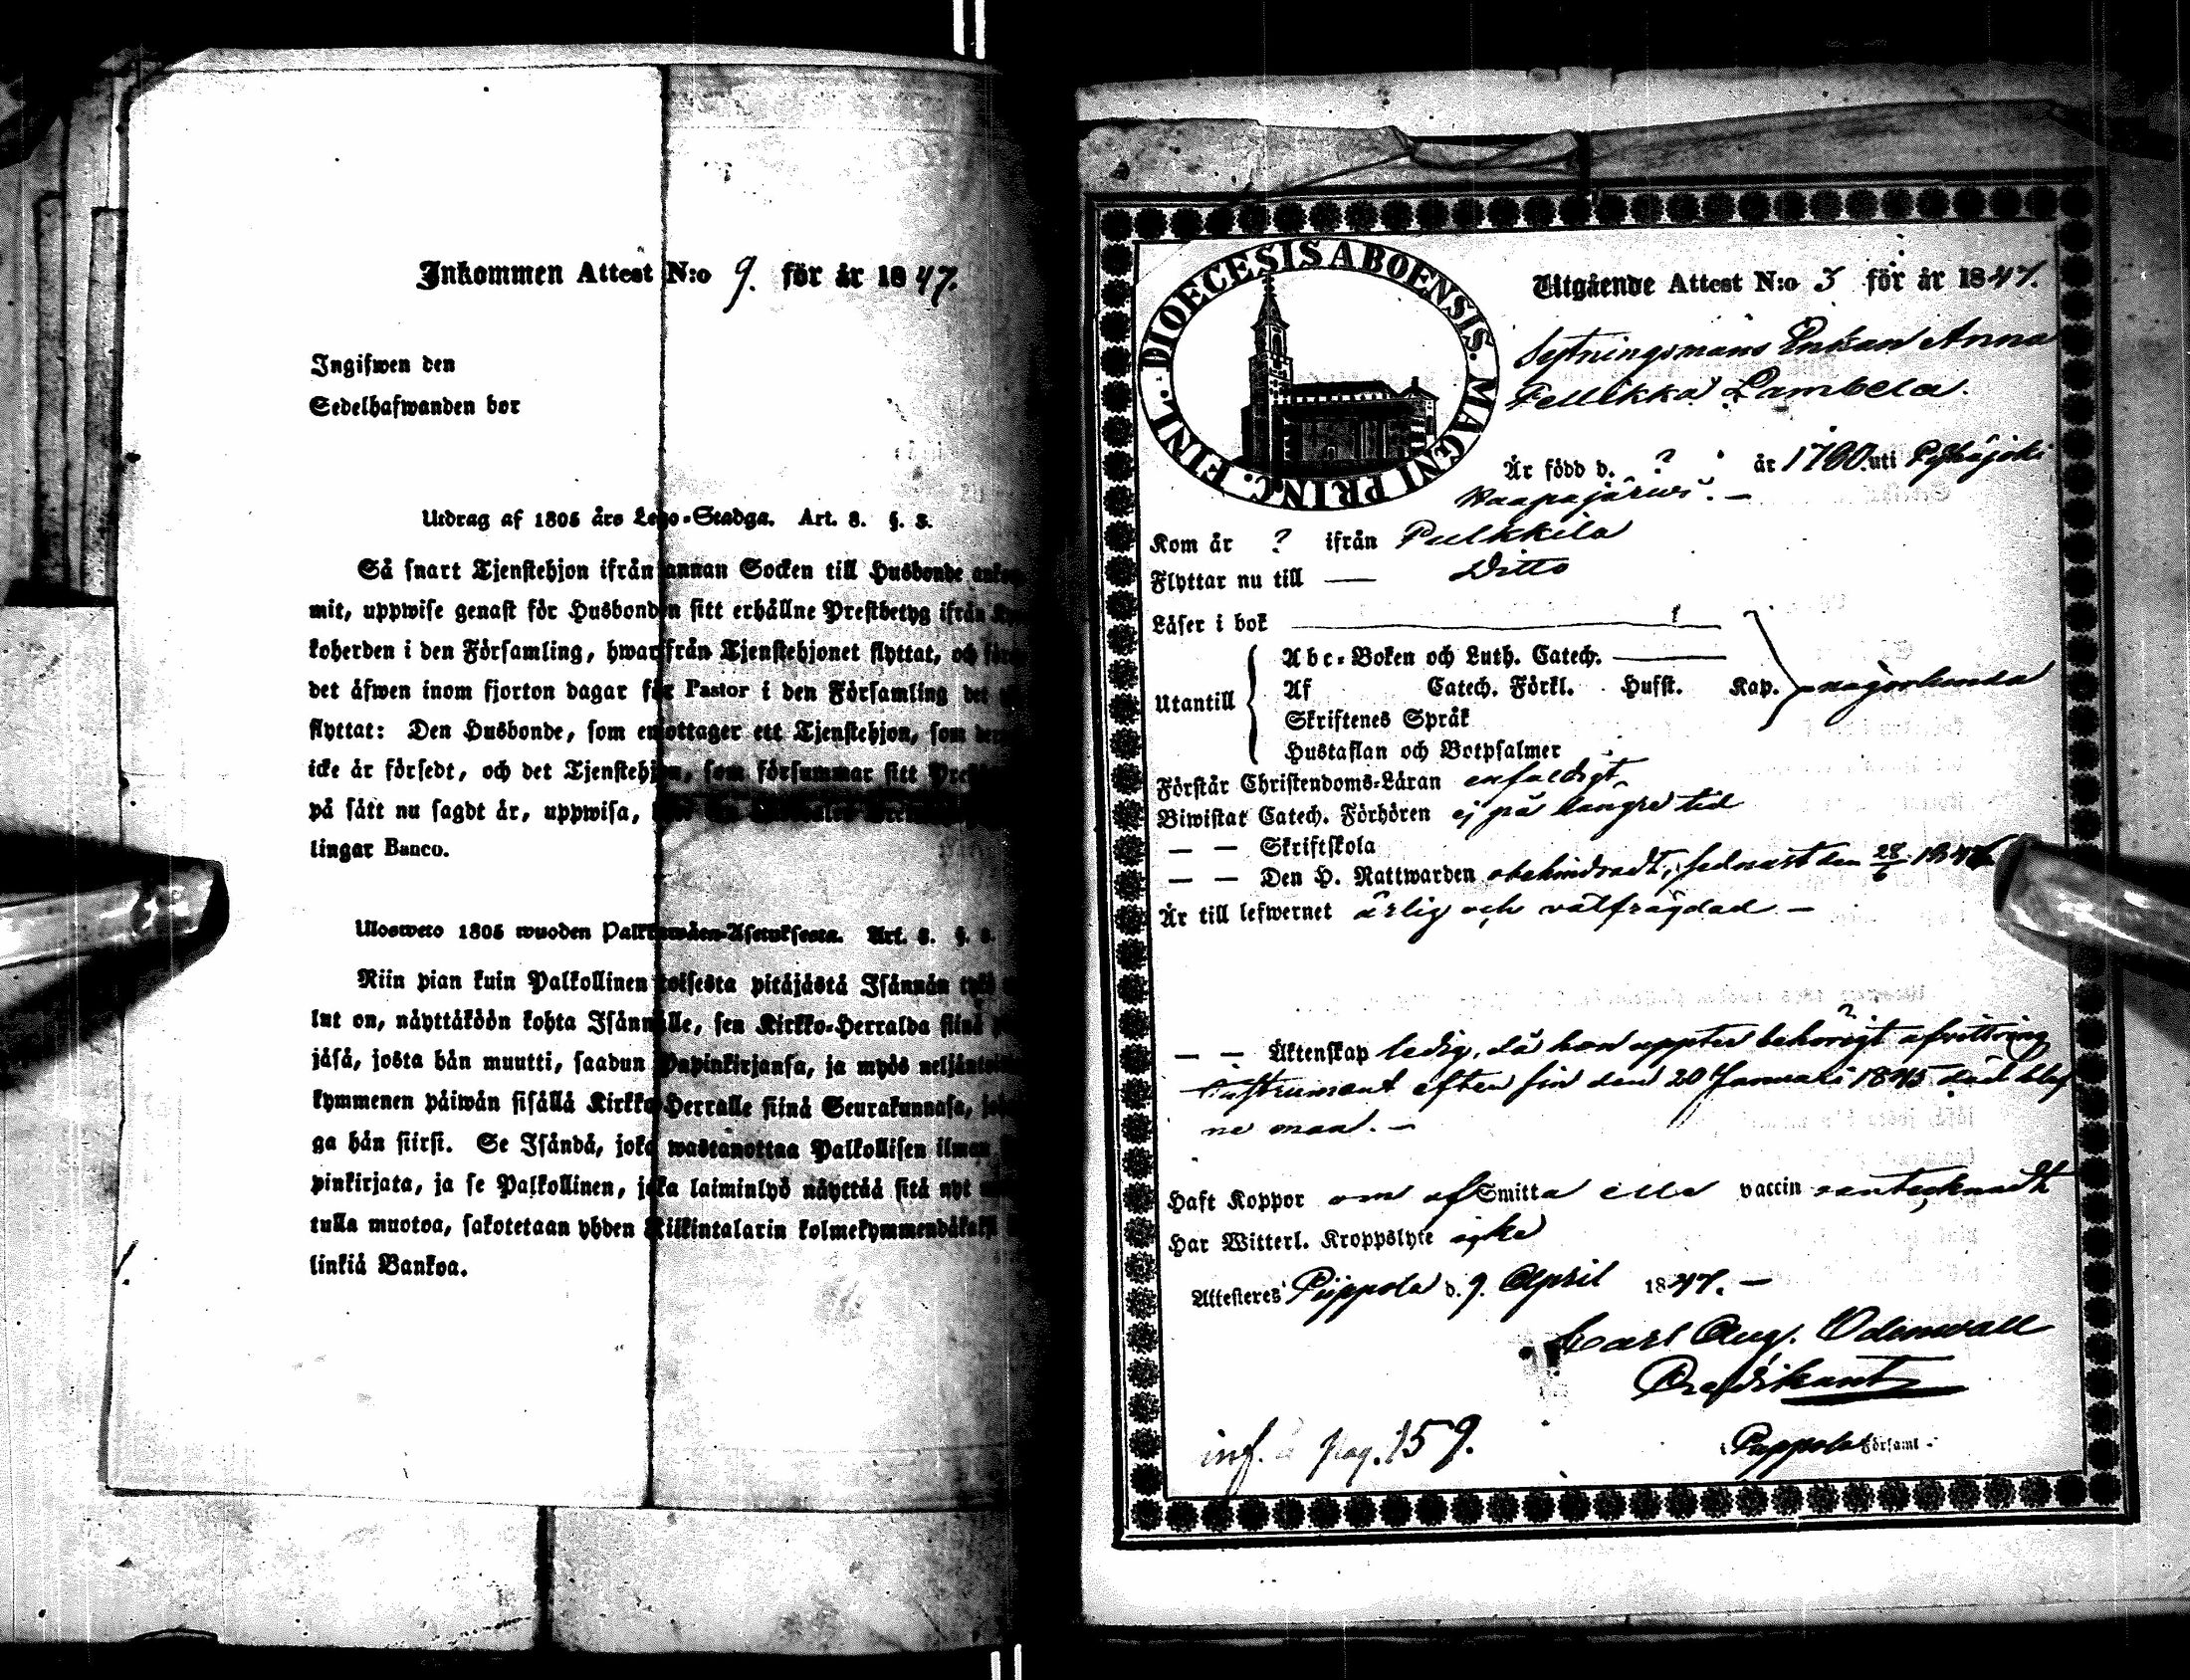 Inkommen Attest N:o 9. för år 1847.
Ingifwen den
Sedelhafwanden bor
Utdrag af 1805 års Lego-Stadga. Art. 8. §. 3.
Så snart Tjenstehjon ifrån annan Socken till Husbonde
mit, uppwise genast för Husbonden sitt erhållne Prestbetyg ifrån
koherden i den Församling, hwarifrån Tjenstehjonet flyttat, och
det äfwen inom fjorton dagar för Pastor i den Församling det
flyttat: Den Husbonde, som emottager ett Tjenstehjon, som
icke är försedt, och det Tjenstehjon, som försummar sitt
på sätt nu sagdt är, uppwisa,
lingar Banco.
Ulosweto 1805 wuoden Palkkawäen-Asetuksesta. Art. 8. §.
Niin pian kuin Palkollinen toisesta pitäjästä Isännän
lut on, näyttäköön kohta Isännälle, sen Kirkko-Herralda siinä
jäsä, josta hän muutti, saadun Papinkirjansa, ja myös
kymmenen päiwän sisällä Kirkko-Herralle siinä Seurakunnasa,
ga hän siirsi. Se Isändä, joka wastanottaa Palkollisen ilman
pinkirjata, ja se Palkollinen, joka laiminlyö näyttää sitä nyt
tulla muotoa, sakotetaan yhden Riikintalarin kolmekymmendäkaksi
linkiä Bankoa.
DIOECESIS ABOENSIS. MAGNI PRINC. FINL.
Utgående Attest N:o 3 för år 1847.
Sytningsmans Enkan Anna
Pellikka Lambela.
Är född d. ? år 1760. uti Pyhäjoki
Haapajärwi. —
Kom år ? ifrån Pulkkila
Flyttar nu till — Ditto
Läser i bok
Utantill
Abc-Boken och Luth. Catech.
Af Catech. Förkl. Hufst. Kap. någorlunda
Skriftenes Språk
Hustaflan och Botpsalmer
Förstår Christendoms-Läran enfaldigt
Biwistat Catech. Förhören ej på längre tid
— — Skriftskola
— — Den H. Nattwarden obehindradt, sednast den 28/6
Är till lefwernet ärlig och välfrägdad —
— — Äktenskap ledig, då hon uppter behörigt afvittrings
Instrument efter sin den 20 Januari 1845 död blef
ne man. —
Haft Koppor om af Smitta eller vaccin oantecknadt
Har Witterl. Kroppslyte icke
Attesteres Pippola d. 9. April 1847. —
Carl Aug. Odenwall
Predikant
i Pippola Församl.
inf. å pag. 159.